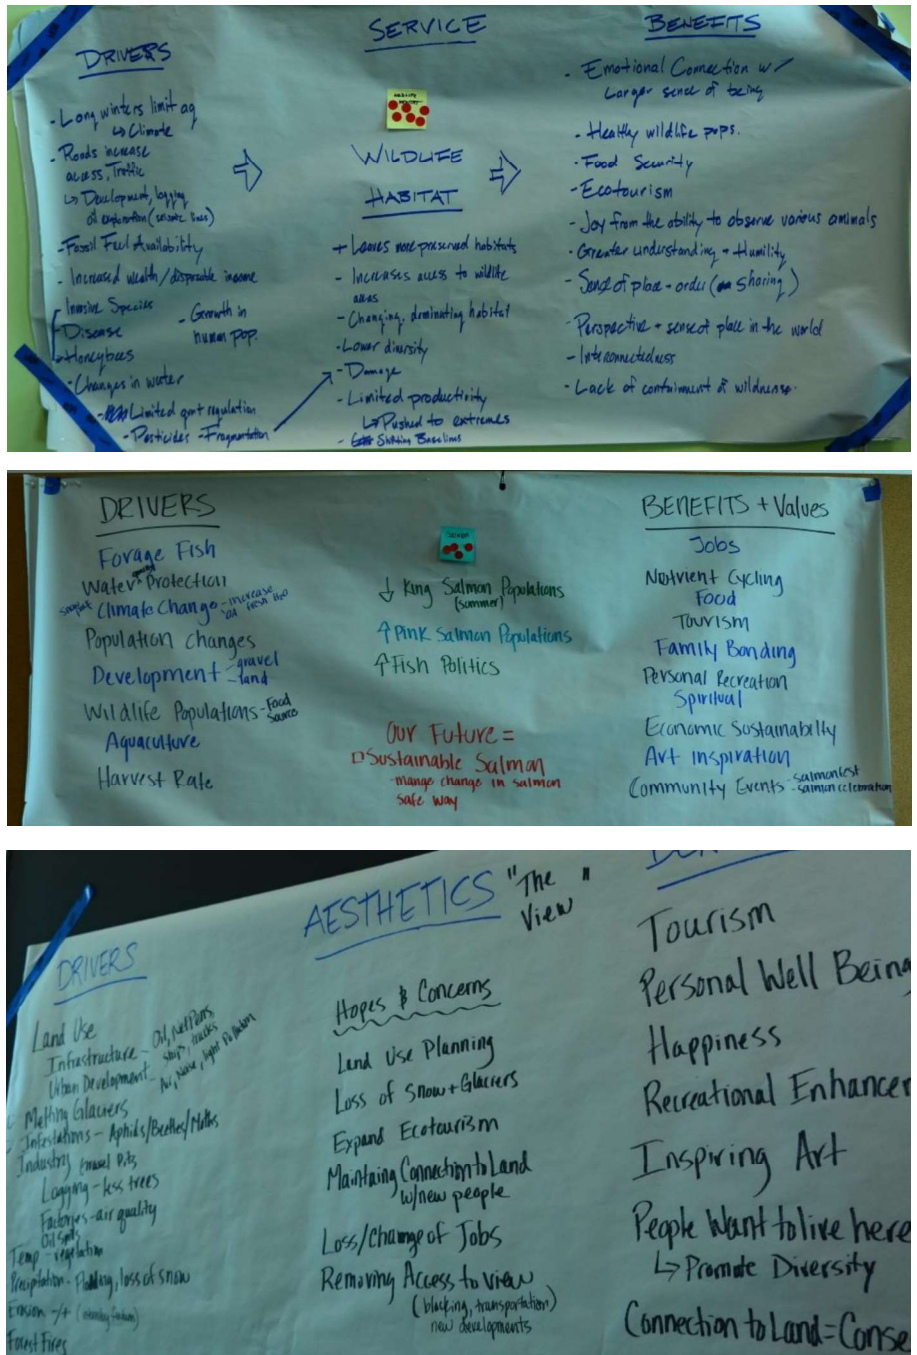 DRIVERS
- Long winters limit ag
↳ Climate
- Roads increase
access, Traffic
↳ Development, logging
oil exploration (seismic lines)
- Fossil Fuel Availability
- Increased wealth/disposable income
Invasive Species
- Disease
- Honeybees
- Growth in
human pop.
- Changes in water
- Limited gmt regulation
- Pesticides - Fragmentation
SERVICE
WILDLIFE
HABITAT
+ Leaves more preserved habitats
- Increases access to wildlife
areas
- Changing, dominating habitat
- Lower diversity
- Damage
- Limited productivity
↳ Pushed to extremes
- Shifting Baselines
BENEFITS
- Emotional Connection w/
Larger sense of being
- Healthy wildlife pops.
- Food Security
- Ecotourism
- Joy from the ability to observe various animals
- Greater understanding + Humility
- Sense of place - order (Sharing)
- Perspective + sense of place in the world
- Interconnectedness
- Lack of containment of wildness.
DRIVERS
Forage Fish
Water Protection
Climate Change - increase
fresh H2O
Population Changes
Development - gravel
- land
Wildlife Populations - Food
Source
Aquaculture
Harvest Rate
↓ King Salmon Populations
(summer)
↑ Pink Salmon Populations
↑ Fish Politics
Our Future =
Sustainable Salmon
- mange change in salmon
safe way
BENEFITS + Values
Jobs
Nutrient Cycling
Food
Tourism
Family Bonding
Personal Recreation
Spiritual
Economic Sustainabilty
Art inspiration
Community Events - salmonfest
- salmon celebration
DRIVERS
Land Use
Infrastructure - Oil, Net Pens,
Ships, trucks
Urban Development - Air, Noise, light Pollution
Melting Glaciers
Infestations - Aphids/Beetles/Moths
Industry Gravel Pits
Logging - less trees
Factories - air quality
Oil Spills
Temp - vegetation
Precipitation - Flooding, loss of snow
Erosion -/+
Forest Fires
AESTHETICS "The
View"
Hopes & Concerns
Land Use Planning
Loss of Snow + Glaciers
Expand Ecotourism
Maintaing Connection to Land
w/new people
Loss/Change of Jobs
Removing Access to view
(blocking, transportation)
new developments
Tourism
Personal Well Being
Happiness
Recreational Enhancer
Inspiring Art
People Want to live here
↳ Promote Diversity
Connection to Land = Conse